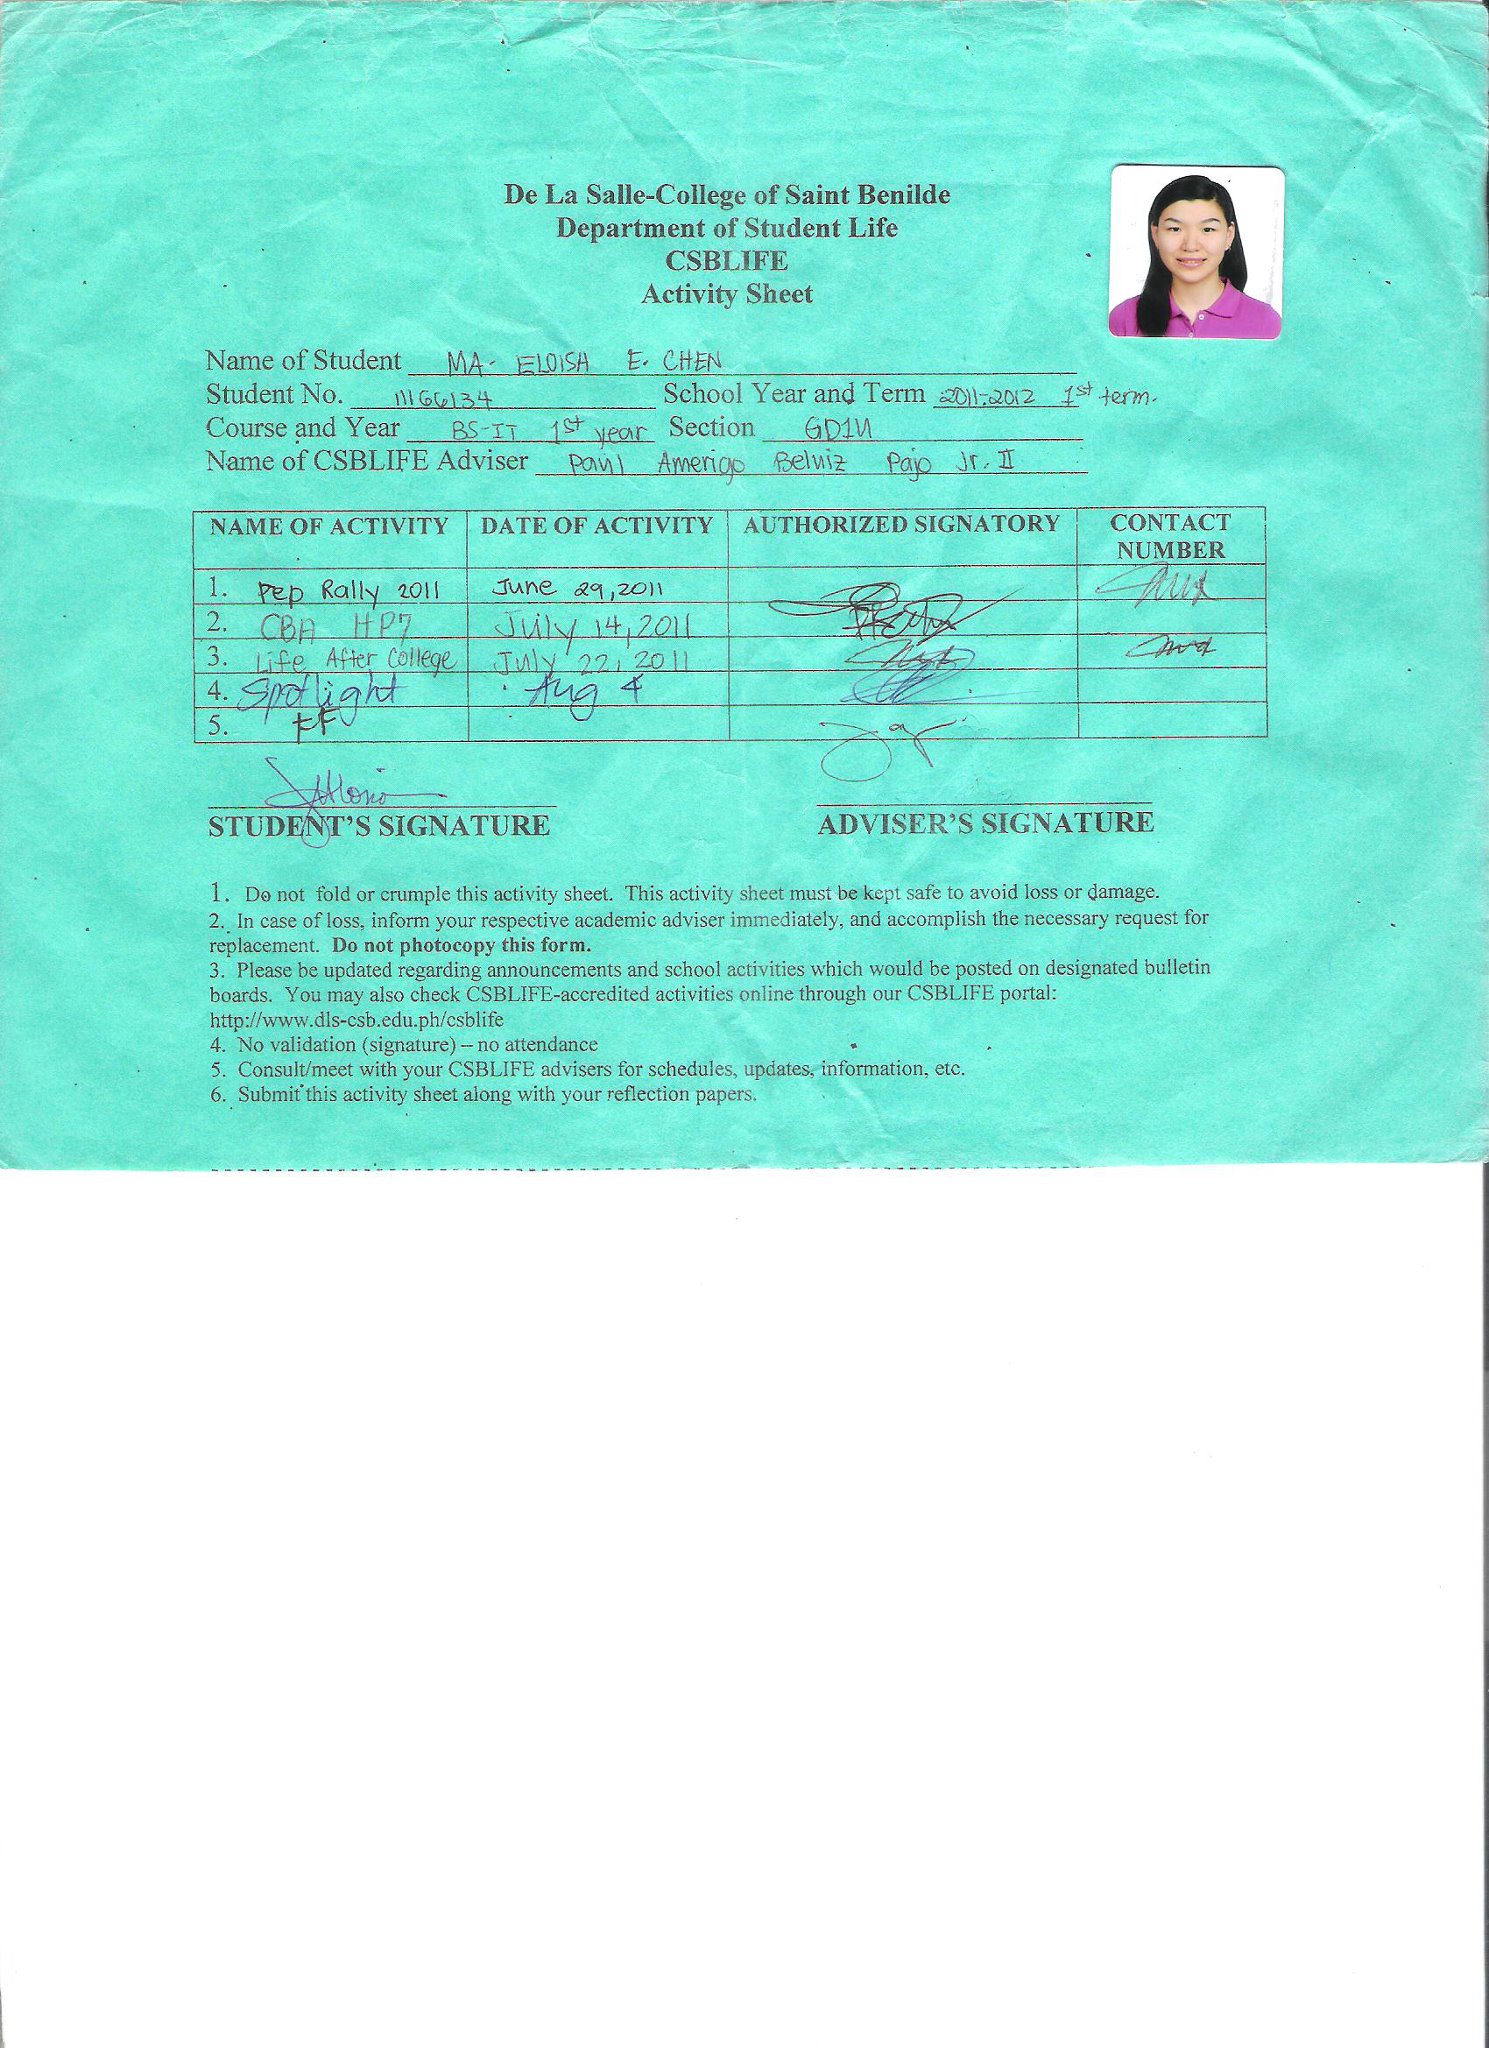 De La Salle-College of Saint Benilde
Department of Student Life
CSBLIFE
Activity Sheet
Name of Student MA. ELOISH E. CHEN
Student No. 11166134 School Year and Term 2011-2012 1st term.
Course and Year BS-IT 1st year Section GD1U
Name of CSBLIFE Adviser Paul Amerigo Pajo Jr. II
NAME OF ACTIVITY DATE OF ACTIVITY AUTHORIZED SIGNATORY CONTACT NUMBER
1. Pep Rally 2011 June 29, 2011
2. CBA HP7 July 14, 2011
3. Life After College July 22, 2011
4. Spotlight Aug 4
5. FF
STUDENT'S SIGNATURE ADVISER'S SIGNATURE
1. Do not fold or crumple this activity sheet. This activity sheet must be kept safe to avoid loss or damage.
2. In case of loss, inform your respective academic adviser immediately, and accomplish the necessary request for
replacement. Do not photocopy this form.
3. Please be updated regarding announcements and school activities which would be posted on designated bulletin
boards. You may also check CSBLIFE-accredited activities online through our CSBLIFE portal:
http://www.dls-csb.edu.ph/csblife
4. No validation (signature) – no attendance
5. Consult/meet with your CSBLIFE advisers for schedules, updates, information, etc.
6. Submit this activity sheet along with your reflection papers.